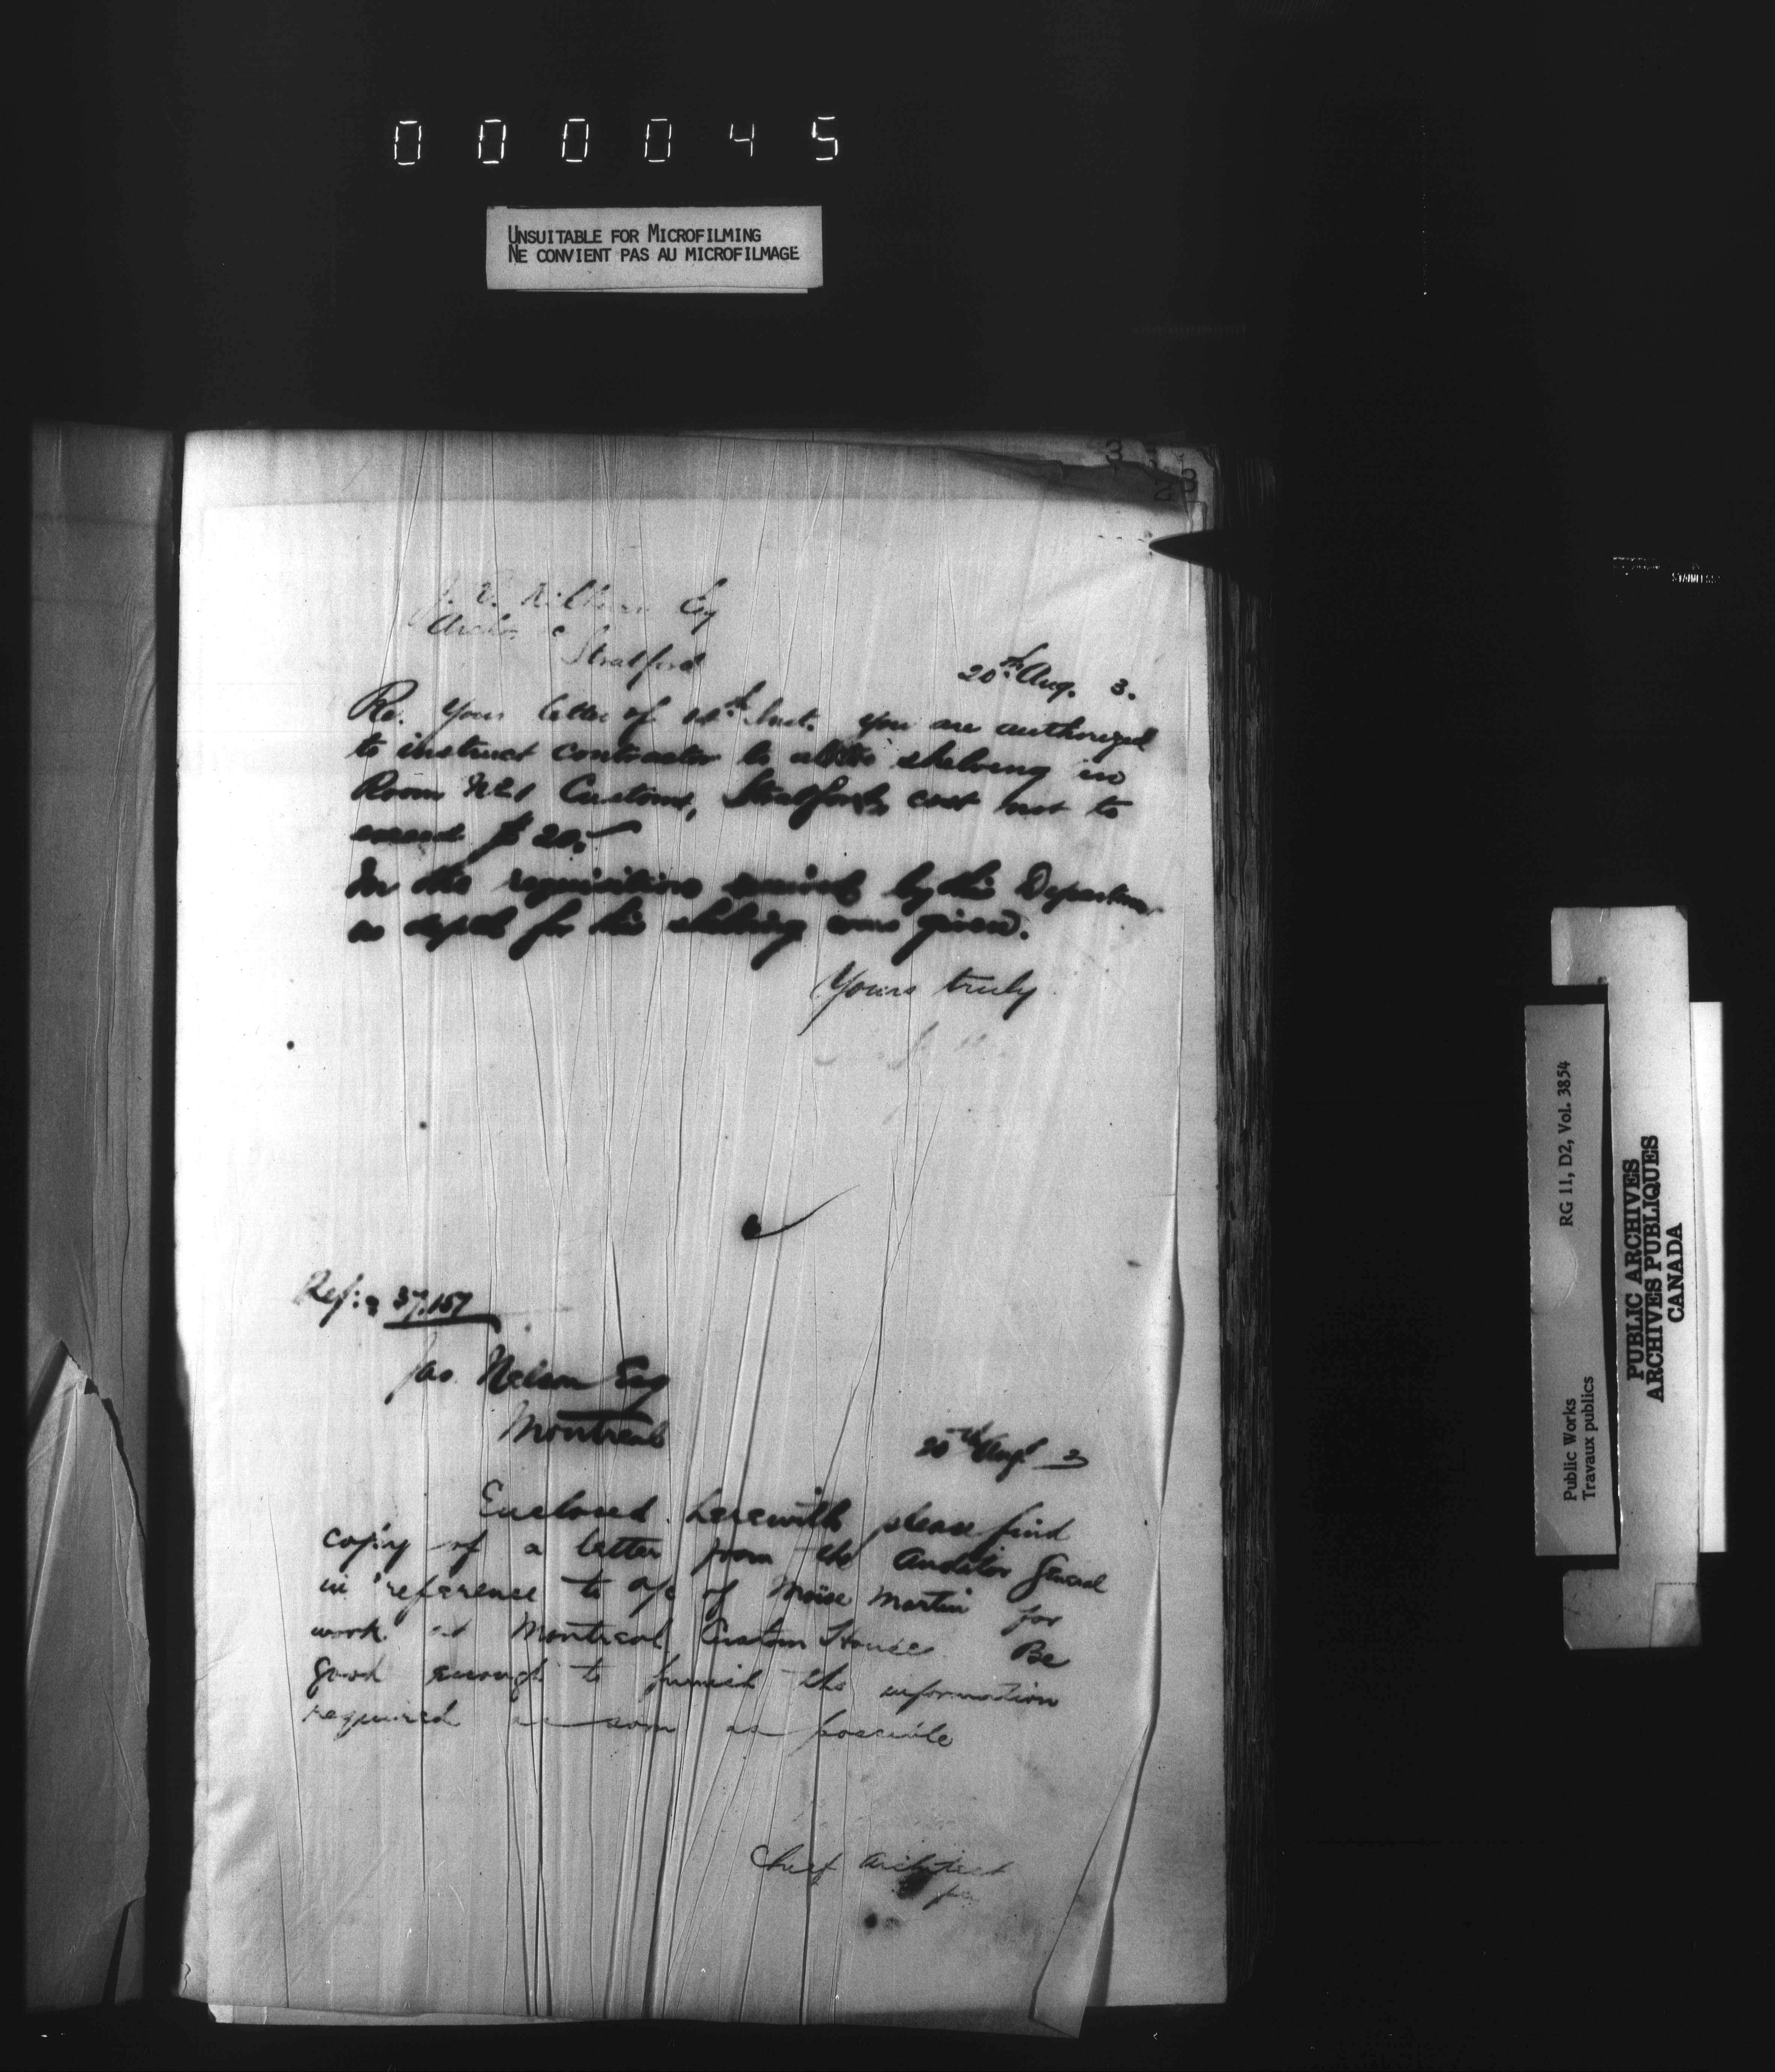 000045
UNSUITABLE FOR MICROFILMING
NE CONVIENT PAS AU MICROFILMAGE
Esq
Stratford
20th Aug. 3.
Re. Your letter of Inst. you are authorized
to instruct contractor to alter shelving in
Room No 1 Customs, Stratford, cost not to
exceed $20.
In the requisition received by this Department
no depth for this shelving was given.
Yours truly
Ref: 37.157
Jas. Nelson Esq
Montreal
20th Augt 3
Enclosed herewith please find
copy of a letter from the Auditor General
in reference to a/c of Moïse Martin for
work at Montreal Custom House. Be
good enough to furnish the information
required as soon as possible
Chief Architect
RG 11, D2, Vol. 3854
Public Works
Travaux publics
PUBLIC ARCHIVES
ARCHIVES PUBLIQUES
CANADA